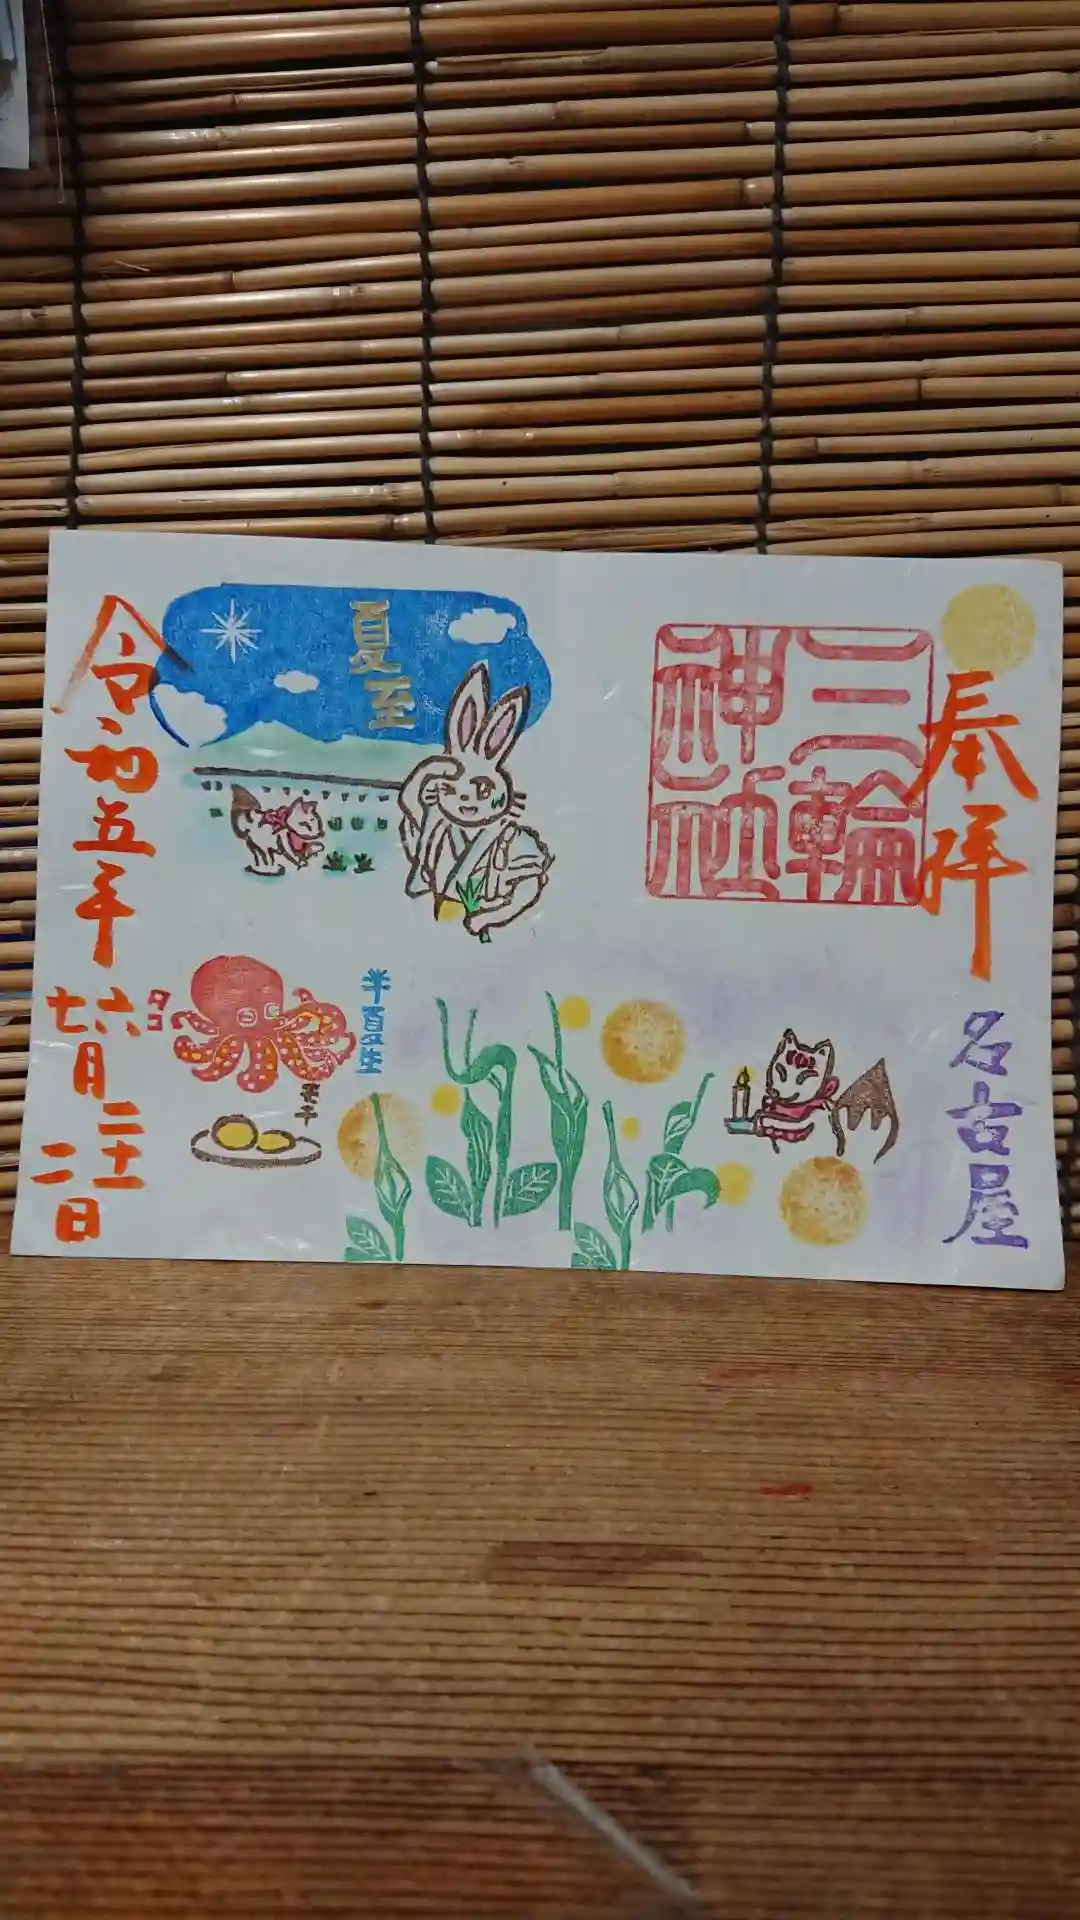 奉拝
名古屋
三輪
神社
夏至
半夏生
タコ
令和五年
六月二十一日
七月二日